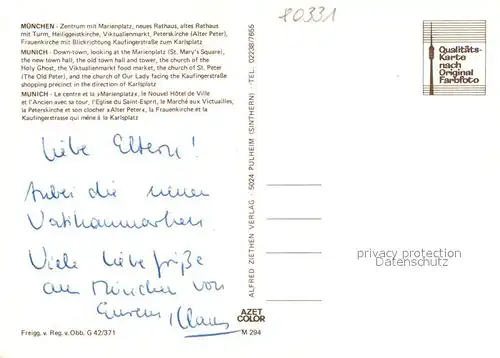 MÜNCHEN - Zentrum mit Marienplatz, neues Rathaus, altes Rathaus
mit Turm, Heiliggeistkirche, Viktualienmarkt, Peterskirche (Alter Peter),
Frauenkirche mit Blickrichtung Kaufingerstraße zum Karlsplatz
MUNICH - Down-town, looking at the Marienplatz (St. Mary's Square),
the new town hall, the old town hall and tower, the church of the
Holy Ghost, the Viktualienmarkt food market, the church of St. Peter
(The Old Peter), and the church of Our Lady facing the Kaufingerstraße
shopping precinct in the direction of Karlsplatz
MUNICH - Le centre et la »Marienplatz«, le Nouvel Hôtel de Ville
et l'Ancien avec sa tour, l'Eglise du Saint-Esprit, le Marché aux Victuailles,
la Peterskirche et son clocher »Alter Peter«, la Frauenkirche et la
Kaufingerstrasse qui mène à la Karlsplatz
80331
Qualitäts-
Karte
nach
Original
Farbfoto
Liebe Eltern!
Anbei die neuen
Vatikanmarken
Viele liebe Grüße
aus München von
Eurem Klaus
ALFRED ZIETHEN VERLAG · 5024 PULHEIM (SINTHERN) · TEL. 02238/7655
privacy protection
Datenschutz
AZET
COLOR
Freigg. v. Reg. v. Obb. G 42/371
M 294